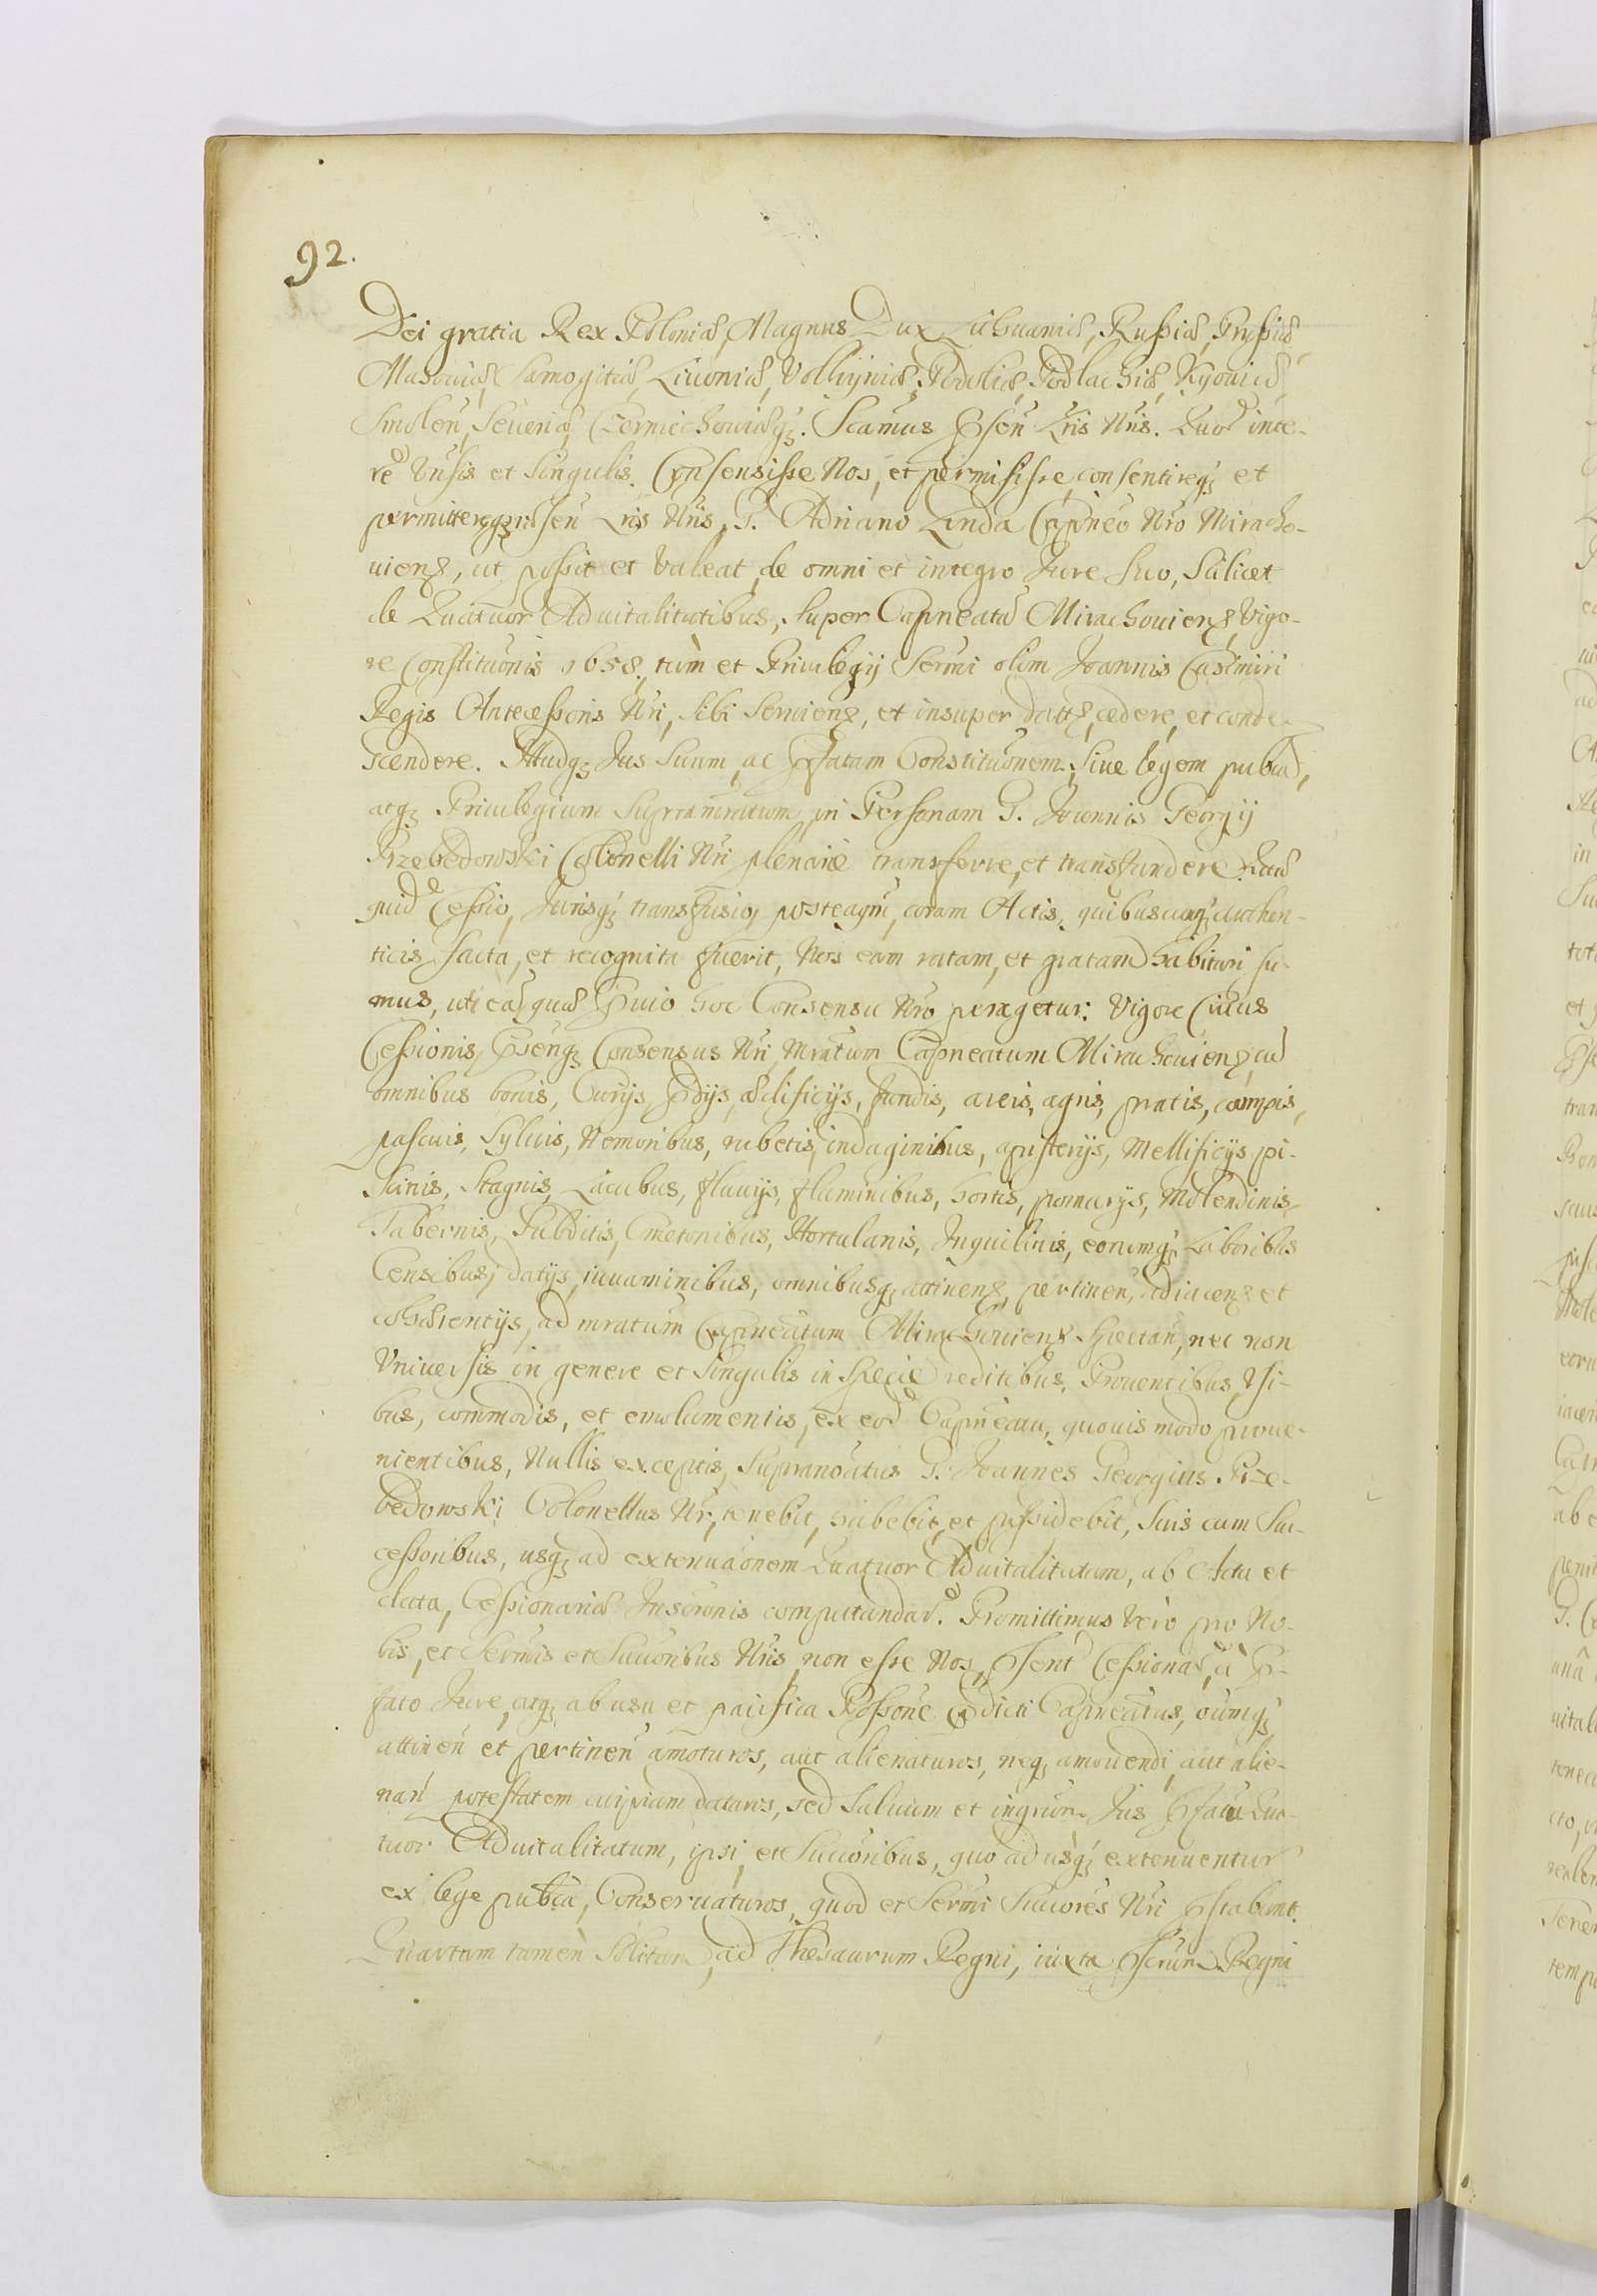 92.
Dei gratia Rex Poloniæ, Magnus Dux Lithuaniæ, Russiæ, Prussiæ
Masoviæ, Samogitiæ, Livoniæ, Volhyniæ, Podoliæ, Podlachiæ, Kijoviæ
Smolen, Severiæ, Czerniechoviæq. Scamus Psen Lris Nris. Quod inte-
re Vnsis et Singulis. Consensisse Nos, et permisisse, consentireq et
permittereq Psen Lris Nris, G. Adriano Linda Capneo Nro Miracho-
uiens, ut possit et valeat, de omni et integro Jure suo, Scilicet
de Quatuor Advitalitatibus, super Capneatu Mirachouiens, Vigo-
re Constituonis 1658. tùm et Priuilegij Sermi olim Joannis Casimiri
Regis Antecessoris Nri, sibi seruiens, et insuper dattæ, cedere, et conde-
scendere. Illudq Jus suum, ac Pfatam Constituonem, siue legem pubcam,
atq Priuilegium supranratum in Personam G. Joannis Georgij
Przebedowski Colonelli Nri plenariè transferre, et transfundere. Quæ
quid Cessio, Jurisq transfusio, posteaqm, coram Actis, quibuscunq authen-
ticis facta, et recognita fuerit, Nos eam ratam, et gratam habituri su-
mus, uti ea, quæ Pvio hoc Consensu Nro peragetur: Vigore Cuius
Cessionis, Psenq Consensus Nri, Mratum Capneatum Mirachouiens, cu
omnibus bonis, Curijs, Pdijs, ædificijs, fundis, areis, agris, pratis, campis,
pascuis, Syluis, Nemoribus, rubetis, indaginibus, apisterijs, Mellificijs, pi-
scinis, Stagnis, Lacubus, fluuijs, fluminibus, hortis, pomarijs, Molendinis,
Tabernis, Subditis, Cmetonibus, Hortulanis, Inquilinis, eorumq Laboribus
Censibus, datijs, iuuaminibus, omnibusq attinens, pertinen, adiacens et
cohærentijs, ad mratum Capneatum Mirachouiens spectan, nec non
Vniuersis in genere et singulis in specie reditibus, Prouentibus, Vsi-
bus, commodis, et emolumentis, ex eod Capneatu, quouis modo proue-
nientibus, Nullis exceptis, Supranoatus G. Joannes Georgius Prze-
bedowski Colonellus Nr, tenebit, habebit, et possidebit, suis cum Suc-
cessoribus, usq ad extenuaonem Quatuor Advitalitatum, ab Acta et
data, Cessionariæ Inscronis computandar. Promittimus verò pro No-
bis, et Sermis et Succoribus Nris, non esse Nos, Psent Cessionar, à P-
fato Jure, atq ab usu et pacifica Possone Pdicti Capneatus, oumq
attinen et pertinen amoturos, aut alienaturos, neq amouendi, aut alie-
nan potestatem cuipiam daturos, sed saluum et ingrum Jus Pfatu Qua-
tuor Advitalitatum, ipsi, et Succoribus, quo ad usq extenuentur
ex lege pubca, Conseruaturos, quod et Sermi Succores Nri Pstabunt.
Quartam tamen solitam, ad Thesaurum Regni, iuxta Pscrum Regni